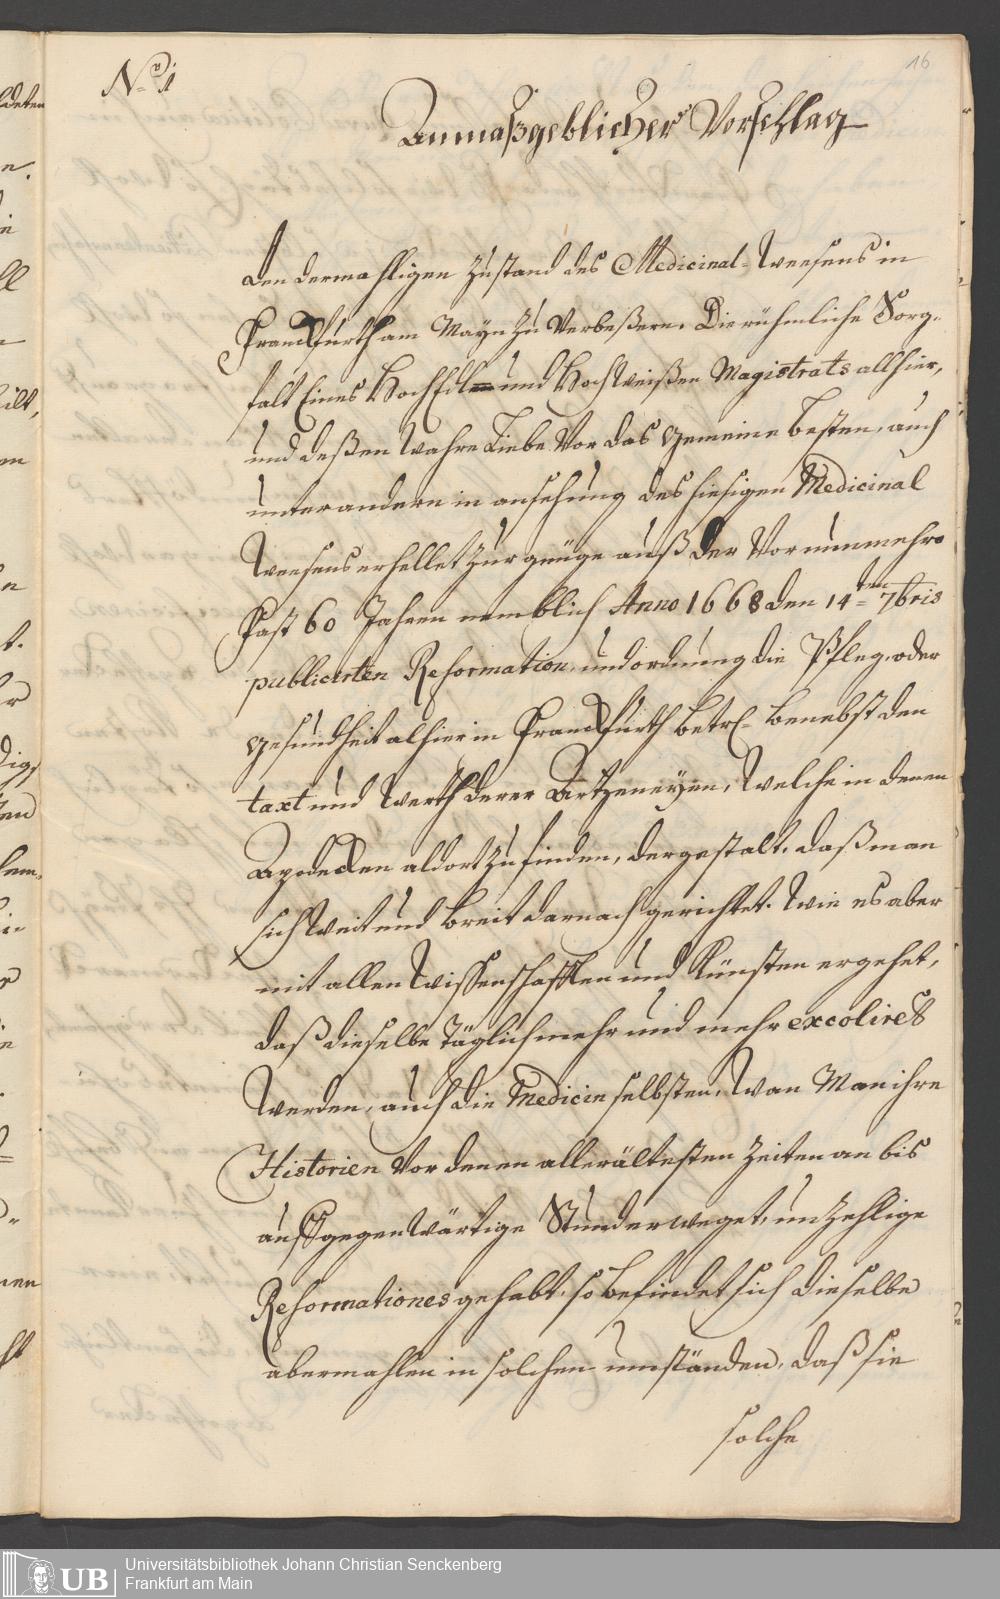 16
No. 1
Unmaßgeblicher Vorschlag
den dermahligen Zustand des Medicinal-Weesens in
Franckfurth am Mayn zu verbeßern. Die rühmliche Sorg-
falt Eines HochEdl- und Hochweißen Magistrats allhier,
und deßen wahre Liebe vor das gemeine Besten, auch
unter andern in ansehung des hiesigen Medicinal
Weesens erhellet zur genüge auß der vor nunmehro
fast 60 Jahren nemblich Anno 1668 den 14ten 7bris
publicirten Reformation, und ordnung die Pfleg, oder
gesundheit alhier in Franckfurth betrl. benebst den
taxt und werth derer Artzeneyen, welche in denen
Apodecken aldort zu finden, dergestalt, daß man
sich weit und breit darnach gerichtet. Wie es aber
mit allen Wissenschafften und Künsten ergehet,
daß dieselbe täglich mehr und mehr excoliret
werden, auch die Medicin selbsten, wan Man ihre
Historien von denen allerältesten Zeiten an bis
auff gegenwärtige Stund erweget, unzehlige
Reformationes gehabt, so befindet sich dieselbe
abermahlen in solchen umständen, daß sie
solche
UB
Universitätsbibliothek Johann Christian Senckenberg
Frankfurt am Main